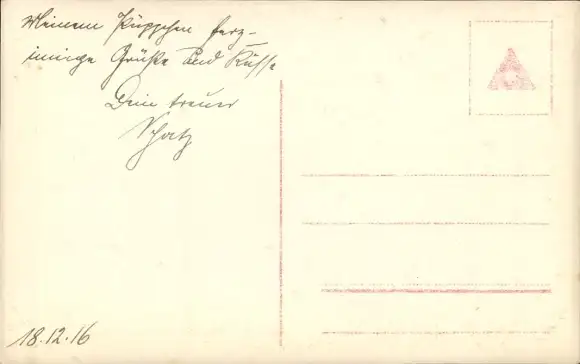 Meinem Püppchen herz-
innige Grüße und Küsse
Dein treuer
Schatz
18.12.16